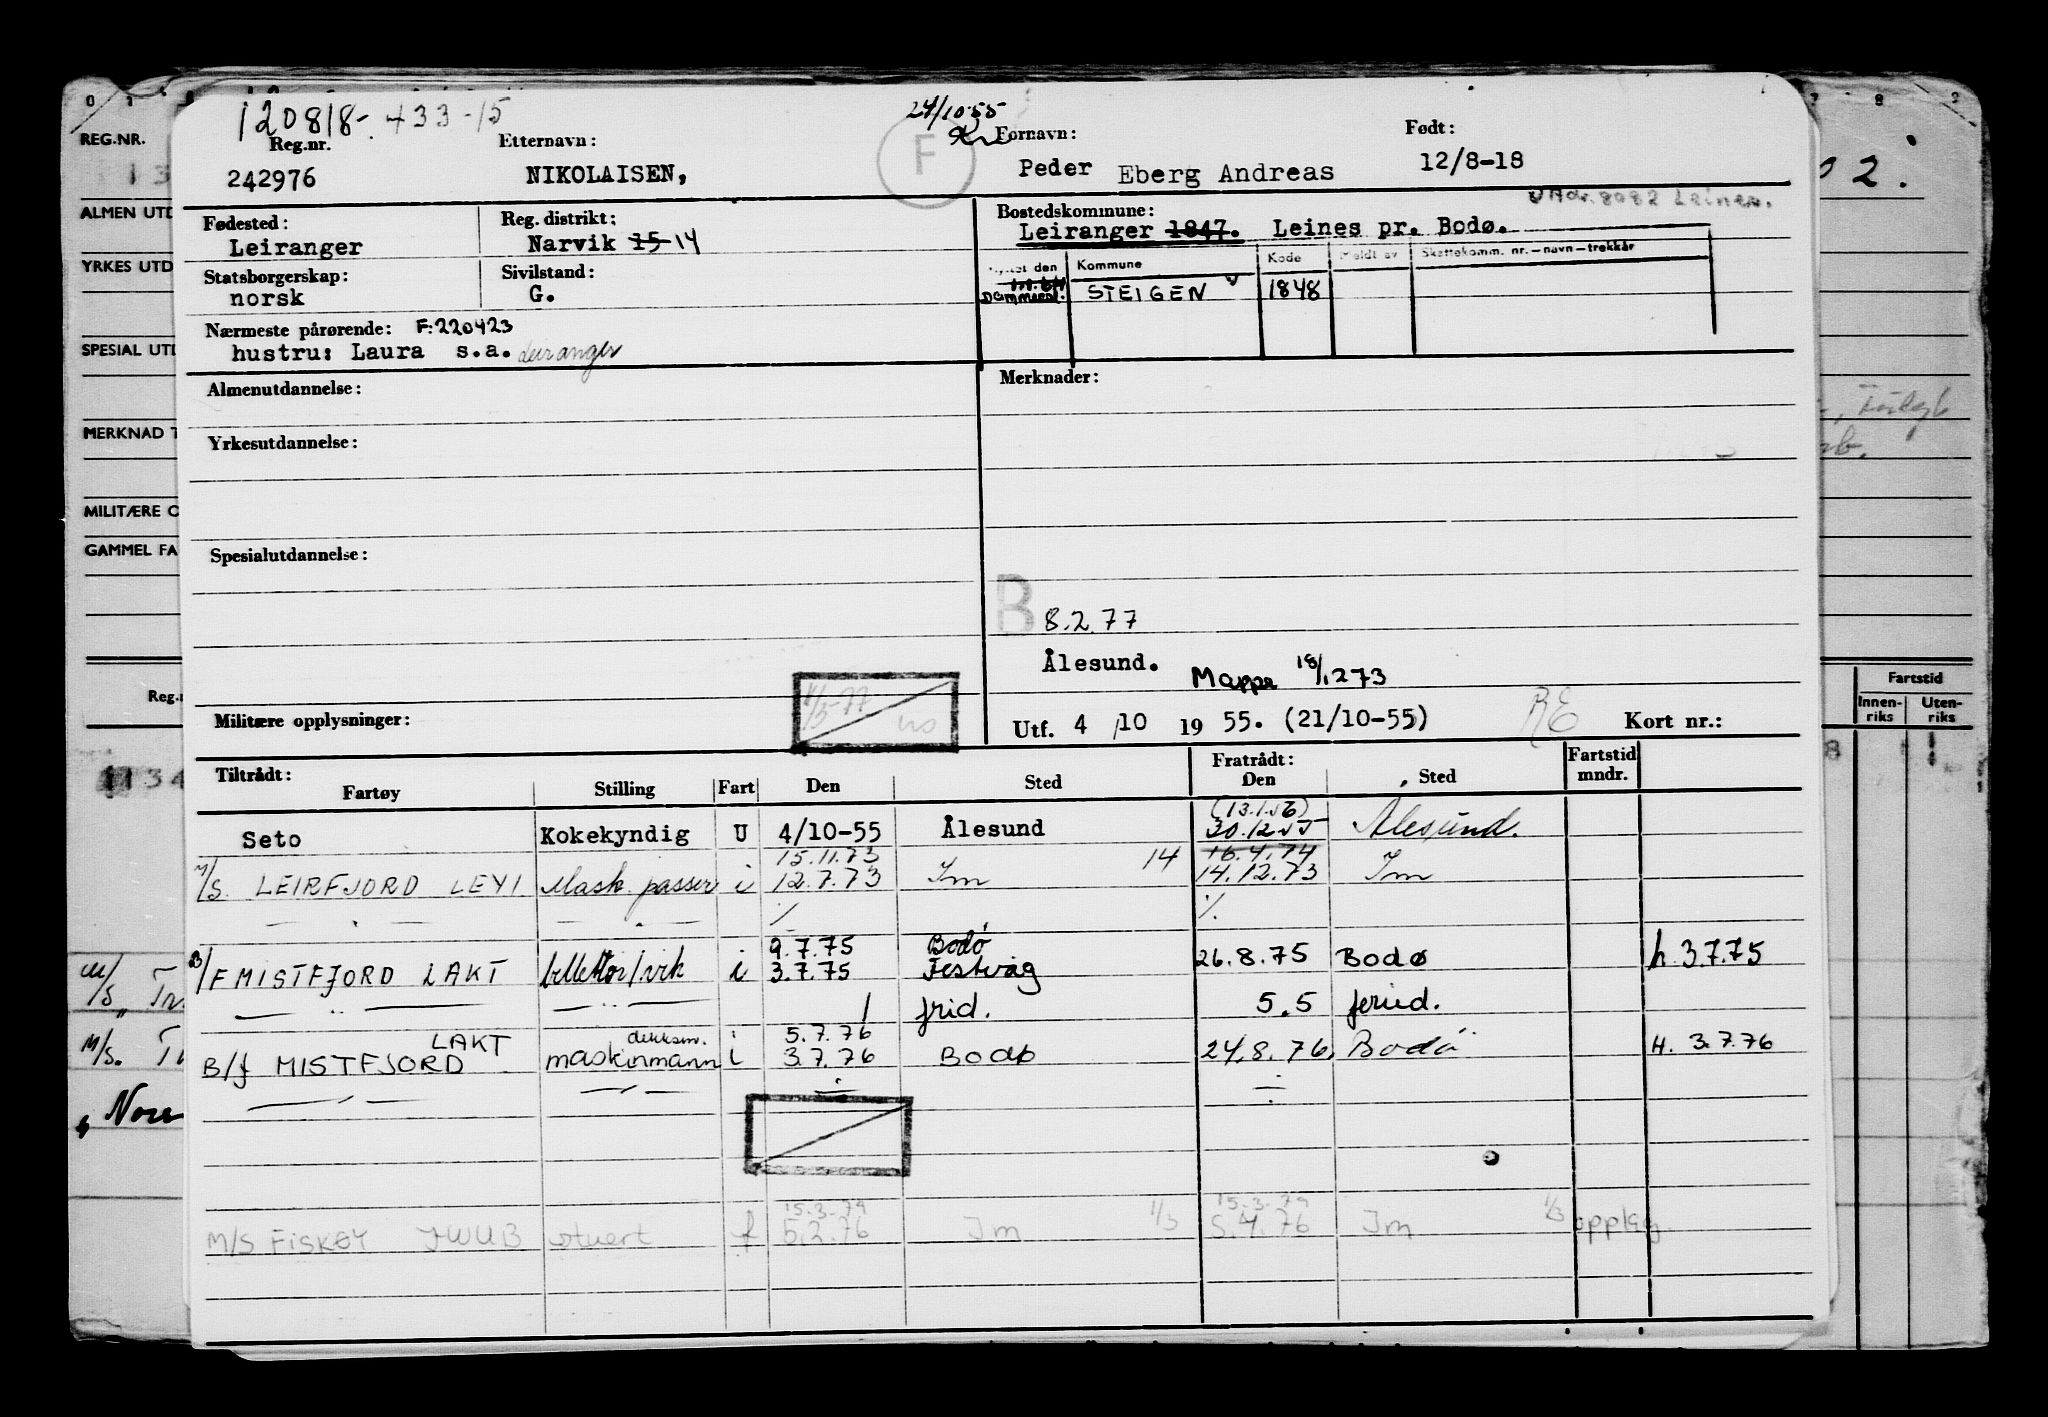 120818-43315
24/10-55
Reg.nr.
Etternavn:
Fornavn:
Født:
242976
NIKOLAISEN,
F
Peder Eberg Andreas
12/8-18
Fødested:
Reg. distrikt:
Bostedskommune:
Adr. 8082 Leines.
Leiranger
Narvik 15 14
Leiranger 1847. Leines pr. Bodø.
Statsborgerskap:
Sivilstand:
Flyttet den
Kommune
Kode
Meldt av
Skattekomm. nr. – navn – trekkår
norsk
G.
STEIGEN
1848
Nærmeste pårørende: F:220423
hustru: Laura s.a. Leiranger
Almenutdannelse:
Merknader:
Yrkesutdannelse:
Spesialutdannelse:
B 8.2.77
Ålesund. Mappe 18/1273
Militære opplysninger:
Utf. 4/10 1955. (21/10-55)
RE
Kort nr.:
Tiltrådt:
Fratrådt:
Fartstid mndr.
Fartøy
Stilling
Fart
Den
Sted
Den
Sted
(13.1.56)
Seto Kokekyndig U 4/10-55 Ålesund 30.12.55 Ålesund.
15.11.73 14 16.4.74
M/S. LEIRFJORD LEYI Mask. passer i 12.7.73 Im 14.12.73 Im
9.7.75 Bodø
B/F MISTFJORD LAKT billettør/vik i 3.7.75 Festvåg 26.8.75 Bodø h. 3.7.75
frid. 5.5 feried.
LAKT dekksm. i 5.7.76
B/f MISTFJORD maskinmann i 3.7.76 Bodø 24.8.76. Bodø H. 3.7.76
15.3.79 1/3 15.3.79 1/3
M/S FISKØY JWUB stuert f 5.2.76 Im 5.4.76 Im opplag
REG.NR.
ALMEN UTD
YRKES UTD
SPESIAL UTD
MERKNAD T
MILITÆRE O
GAMMEL FA
Reg.n
Fartstid
Innen-riks
Uten-riks